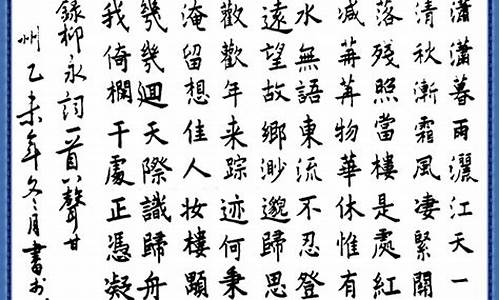 瀟瀟暮雨灑江天一
清秋漸霜風凄緊關
落殘照當樓是處紅
减苒苒物華休惟有
水無語東流不忍登
遠望故鄉渺邈歸思
歡歡年来踪迹何秉
淹留想佳人妆樓顒
幾幾迴天際識歸舟
我倚欄干處正憑凝
録柳永詞一首八聲甘
州乙未年冬月書於